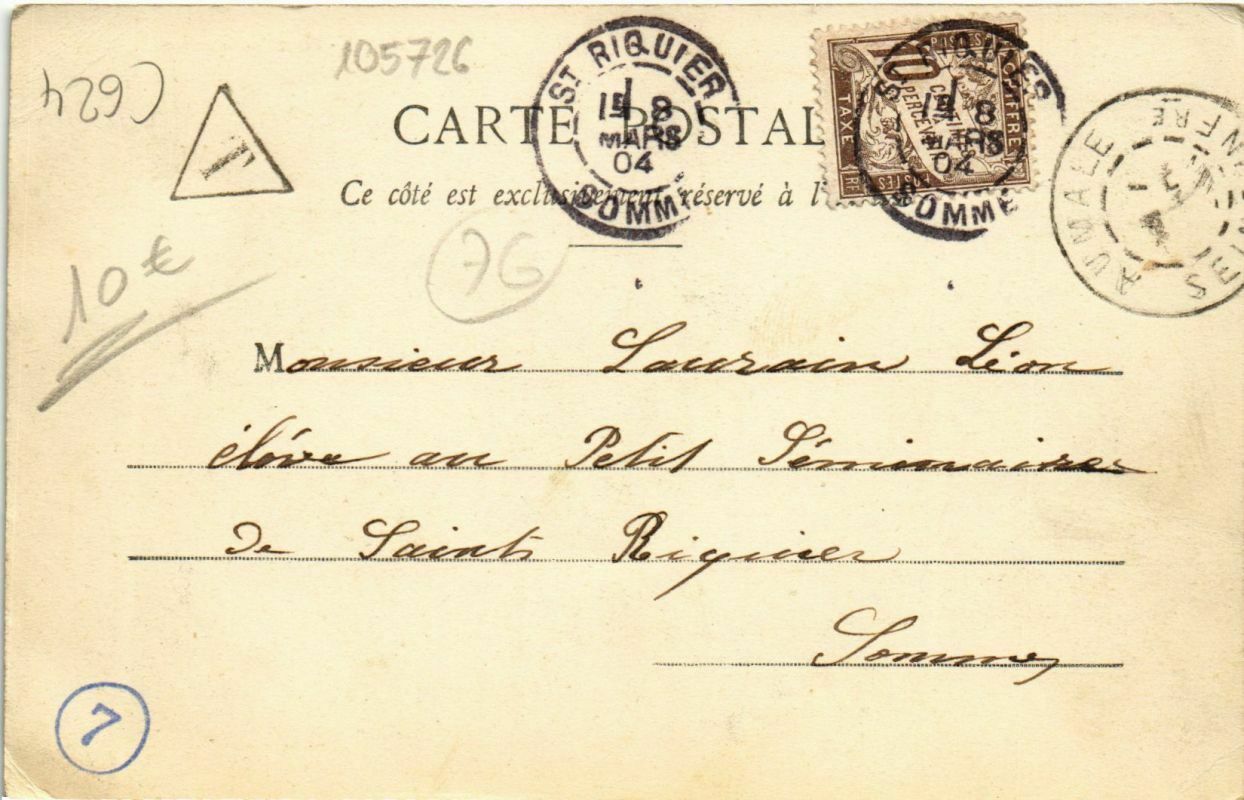 105726
C624
T
CARTE POSTAL
Ce côté est exclusivement réservé à l'
ST RIQUIER
1E
8
MARS
04
SOMME
10
CENTIMES
PERCEVOIR
TAXE
RF
ST RIQUIER
1E
8
MARS
04
SOMME
AUMALE
10 €
76
Monsieur Laurain Léon
élève au Petit Séminaire
de Saint Riquier
Somme
7